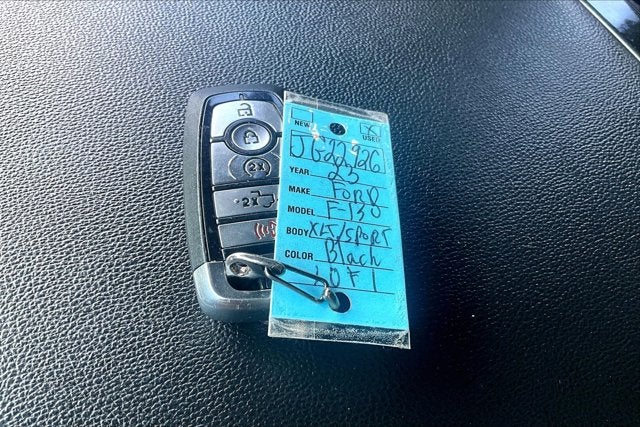 NEW X USED
JG22926
YEAR 23
MAKE FORD
MODEL F-150
BODY XLT/SPORT
COLOR Black
1 OF 1
2X
2X